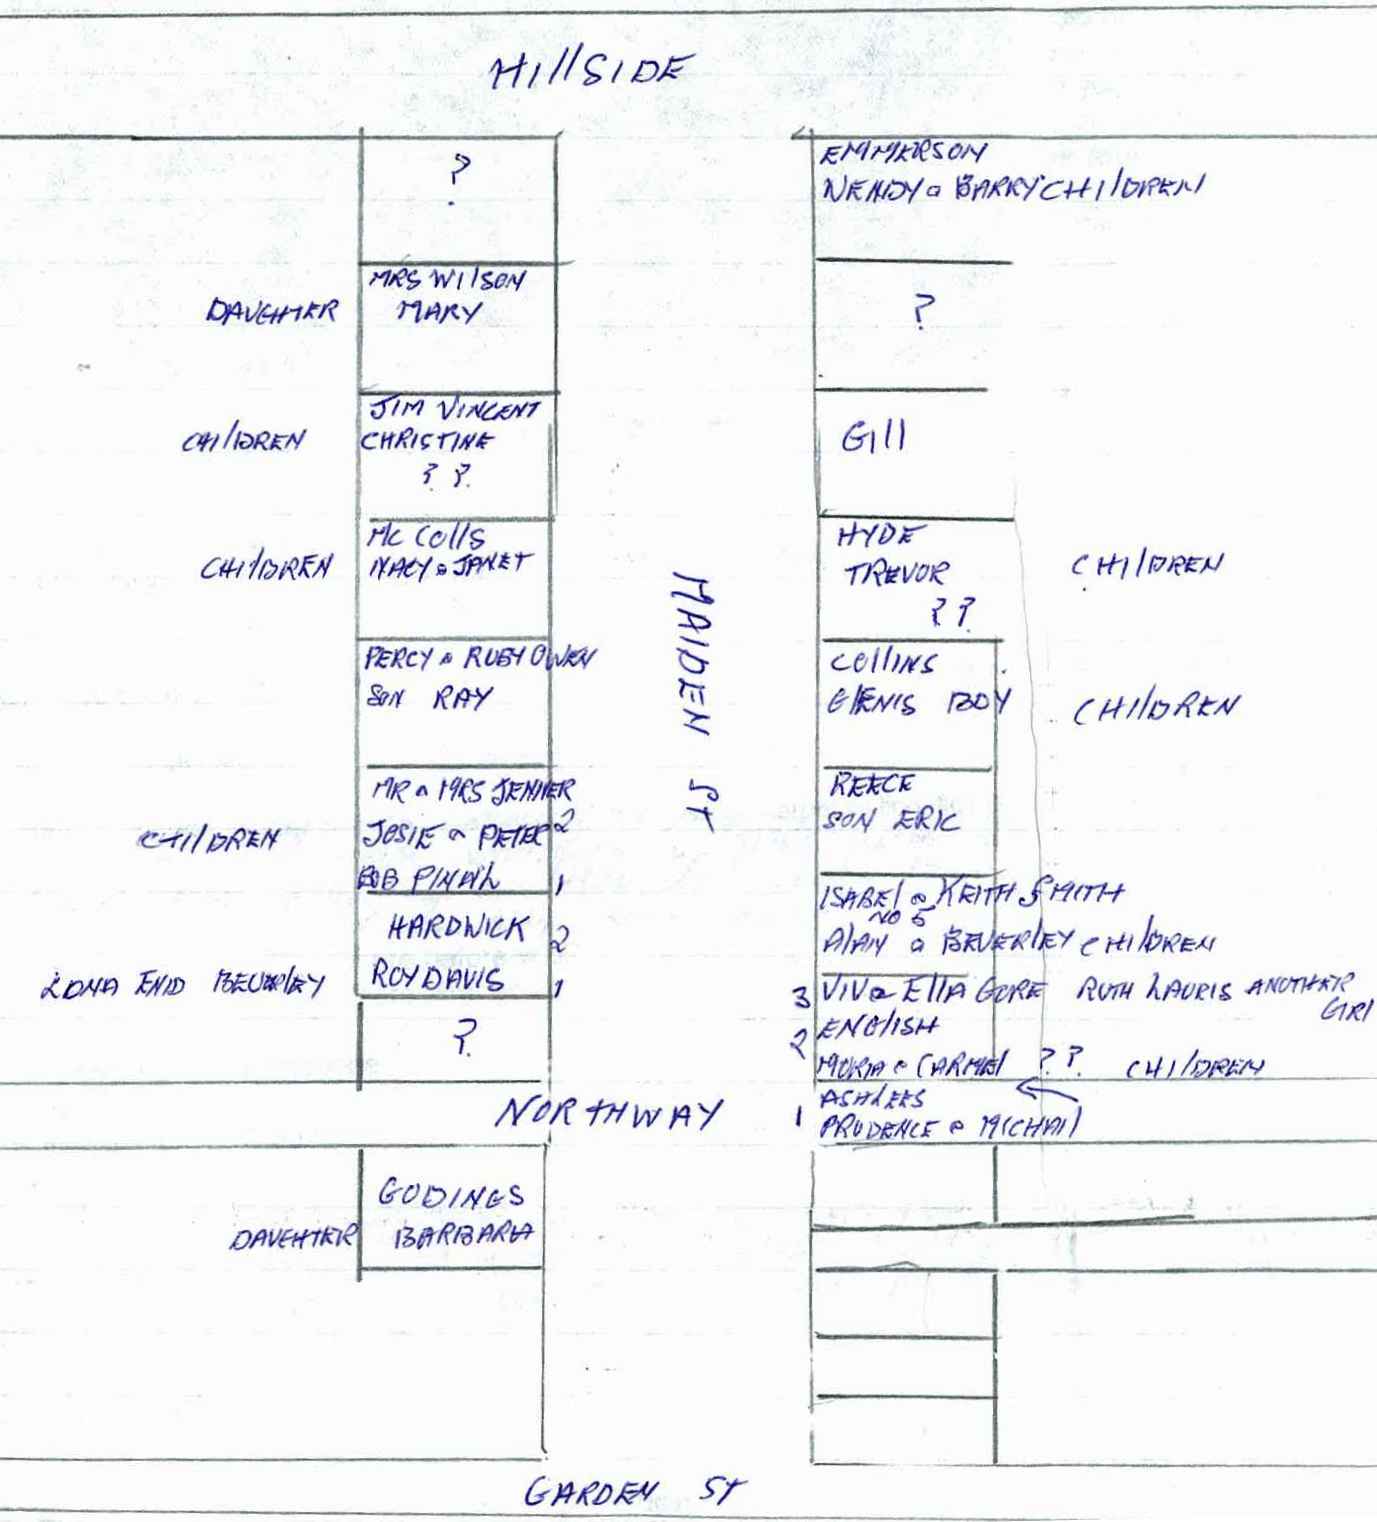 HIllSIDE
?
MRS WIlSON
DAUGHTER MARY
JIM VINCENT
CHILDREN CHRISTINE
? ?
Mc Colls
CHILDREN & JANET
PERCY & RUBY OWEN
SON RAY
MR & MRS JENNER
CHILDREN JOSIE & PETER 2
BOB 1
HARDWICK 2
EDNA ENID BEVERLEY ROY DAVIS 1
?
MAIDEN St
EMMERSON
WENDY & BARRY CHILDREN
?
GIll
HYDE
TREVOR CHILDREN
? ?
COllINS
GlENIS BOY CHILDREN
REECE
SON ERIC
ISABEl & KEITH SMITH
NO 5
AlAN & BEVERlEY CHILDREN
3 VIV & EllA GORE RUTH LAURIS ANOTHER
GIRl
2 ENGlISH
MORIA & CARMEl ? ? CHILDREN
ASHLEES
1 PRUDENCE & MICHAIl
NORTHWAY
GODINGS
DAUGHTER BARBARA
GARDEN ST